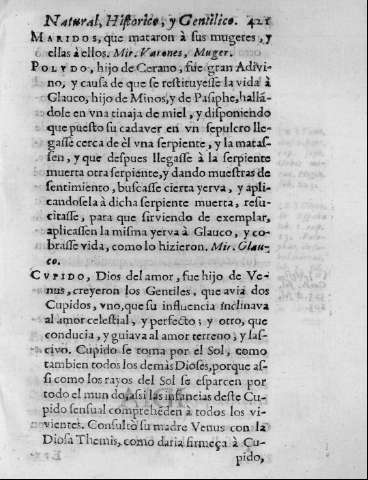 Natural, Historico, y Gentilico. 421
MARIDOS, que mataron à sus mugeres, y
ellas à ellos. Mir. Varones, Muger.
POLYDO, hijo de Cerano, fue gran Adivi-
no, y causa de que se restituyesse la vida à
Glauco, hijo de Minos, y de Pasiphe, hallá-
dole en vna tinaja de miel, y disponiendo
que puesto su cadaver en vn sepulcro lle-
gasse cerca de èl vna serpiente, y la matas-
sen, y que despues llegasse à la serpiente
muerta otra serpiente, y dando muestras de
sentimiento, buscasse cierta yerva, y apli-
candosela à dicha serpiente muerta, resu-
citasse, para que sirviendo de exemplar,
aplicassen la misma yerva à Glauco, y co-
brasse vida, como lo hizieron. Mir. Glau-
co.
CVPIDO, Dios del amor, fue hijo de Ve-
nus, creyeron los Gentiles, que avia dos
Cupidos, vno, que su influencia inclinava
al amor celestial, y perfecto; y otro, que
conducia, y guiava al amor terreno; y las-
civo. Cupido se toma por el Sol, como
tambien todos los demàs Dioses, porque as-
si como los rayos del Sol se esparcen por
todo el mundo, assi las infancias deste Cu-
pido sensual compreheden à todos los vi-
vientes. Consultò su madre Venus con la
Diosa Themis, como daria firmeça à Cu-
pido,